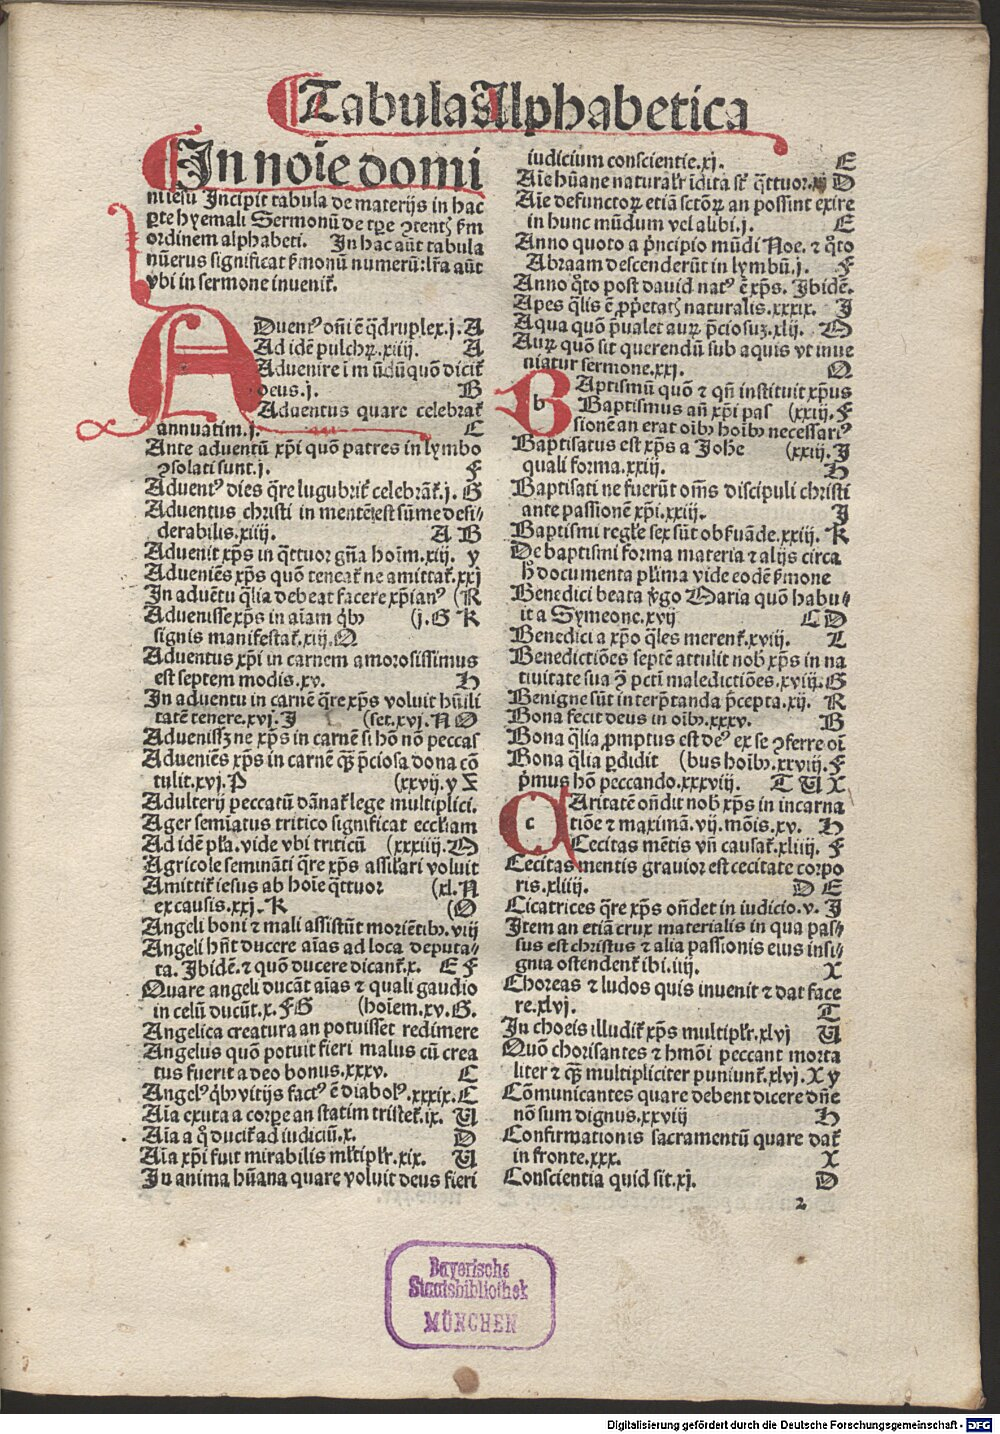 Tabula Alphabetica
In noīe domi
ni iesu Incipit tabula de materijs in hac
ꝑte hyemali Sermonū de tꝑe ꝯtentꝭ ẜm
ordinem alphabeti. In hac aūt tabula
nūerus significat ẜmonū numerū: lr̄a aūt
vbi in sermone inuenit̄.
ADuentꝰ oīm ē q̄druplex.j. A
Ad idē pulchꝝ.xiiij. A
Aduenire ī mūdū quō dicit̄
deus.j. B
Aduentus quare celebrat̄
annuatim.j. C
Ante aduentū xp̄i quō patres in lymbo
ꝯsolati sunt.j. F
Aduentꝰ dies q̄re lugubrit̄ celebrāt̄.j. G
Aduentus christi in mentē est sūme desi⸗
derabilis.xiiij. A B
Aduenit xp̄s in q̄ttuor gn̄a hoīm.xiij. y
Adueniēs xp̄s quō teneat̄ ne amittat̄.xxj
In aduētu q̄lia debeat facere xp̄ianꝰ (R
Aduenisse xp̄s in aīam q̇bꝫ (j.G K
signis manifestat̄.xiij.Q
Aduentus xp̄i in carnem amorosissimus
est septem modis.xv. H
In aduentu in carnē q̄re xp̄s voluit hūili
tatē tenere.xvj.I (set.xvj.N O
Aduenissꝫ ne xp̄s in carnē si hō nō peccas
Adueniēs xp̄s in carnē q̄ꝫ p̄ciosa dona cō
tulit.xvj.P (xxvij.y Z
Adulterij peccatū dānat̄ lege multiplici.
Ager semīatus tritico significat eccl̄iam
Ad idē pl̄a.vide vbi triticū (xxxiij.O
Agricole semināti q̄re xp̄s assil̄ari voluit
Amittit̄ iesus ab hoīe q̄ttuor (xl.N
ex causis.xxj.K (O
Angeli boni ⁊ mali assistūt moriētibꝫ.viij
Angeli hn̄t ducere aīas ad loca deputa⸗
ta. Ibidē. ⁊ quō ducere dicant̄.x. E F
Quare angeli ducāt aīas ⁊ quali gaudio
in celū ducūt.x.F G (hoīem.xv.G.
Angelica creatura an potuisset redimere
Angelus quō potuit fieri malus cū crea
tus fuerit a deo bonus.xxxv. C
Angelꝰ q̇bꝫ vitijs factꝰ ē diabolꝰ.xxxix.C
Aīa exuta a corꝑe an statim tristet̄.ix. U
Aīa a q̊ ducit̄ ad iudiciū.x. D
Aīa xp̄i fuit mirabilis ml̄tipl̄r.xix. U
In anima hūana quare voluit deus fieri
iudicium conscientie.xj. E
Aīe hūane naturalr̄ īdita st̄ q̄ttuor.xj D
Aīe defunctoꝝ etiā sctōꝝ an possint exire
in hunc mūdum vel alibi.j. E
Anno quoto a p̄ncipio mūdi Noe. ⁊ q̊to
Abraam descenderūt in lymbū.j. F
Anno q̊to post dauid natꝰ ē xp̄s. Ibidē.
Apes q̄lis ē ꝓp̄etatꝭ naturalis.xxxix. I
Aqua quō p̄ualet auꝝ p̄ciosuꝫ.xlij. O
Auꝝ quō sit querendū sub aquis vt inue
niatur sermone.xxj. Q
b BAptismū quō ⁊ qn̄ instituit xp̄us
Baptismus an̄ xp̄i pas (xxiij.F
sionē an erat oībꝫ hoībꝫ necessariꝰ
Baptisatus est xp̄s a Johe (xxiij.I
quali forma.xxiij. H
Baptisati ne fuerūt om̄s discipuli christi
ante passionē xp̄i.xxiij. I
Baptismi regl̄e sex sūt obẜuāde.xxiij. K
De baptismi forma materia ⁊ alijs circa
h̊ documenta pl̄ima vide eodē ẜmone
Benedici beata v̊go Maria quō habu⸗
it a Symeone.xvij C D
Benedici a xp̄o q̄les merent̄.xviij. C
Benedictiōes septē attulit nob̄ xp̄s in na
tiuitate sua ꝯ̄ pctī maledictiōes.xviij.G
Benigne sūt interp̄tanda p̄cepta.xij. R
Bona fecit deus in oībꝫ.xxxv. B
Bona q̄lia ꝓmptus est deꝰ ex se ꝯferre oī
Bona q̄lia ꝑdidit (bus hoībꝫ.xxviij.F
p̄mus hō peccando.xxxviij. T U X
c CAritatē on̄dit nob̄ xp̄s in incarna
tiōe ⁊ maximā.vij.mōis.xv. H
Cecitas mētis vn̄ causat̄.xliij. F
Cecitas mentis grauior est cecitate corpo
ris.xliij. D E
Cicatrices q̄re xp̄s on̄det in iudicio.v. I
Item an etiā crux materialis in qua pas⸗
sus est christus ⁊ alia passionis eius insi⸗
gnia ostendent̄ ibi.iiij. X
Choreas ⁊ ludos quis inuenit ⁊ dat face
re.xlvj. T
In choeis illudit̄ xp̄s multipl̄r.xlvj U
Quō chorisantes ⁊ hmōi peccant morta
liter ⁊ q̄ꝫ multipliciter puniunt̄.xlvj.X y
Cōmunicantes quare debent dicere dn̄e
nō sum dignus.xxviij H
Confirmationis sacramentū quare dat̄
in fronte.xxx. X
Conscientia quid sit.xj. D
2
Bayerische
Staatsbibliothek
MÜNCHEN
Digitalisierung gefördert durch die Deutsche Forschungsgemeinschaft - DFG